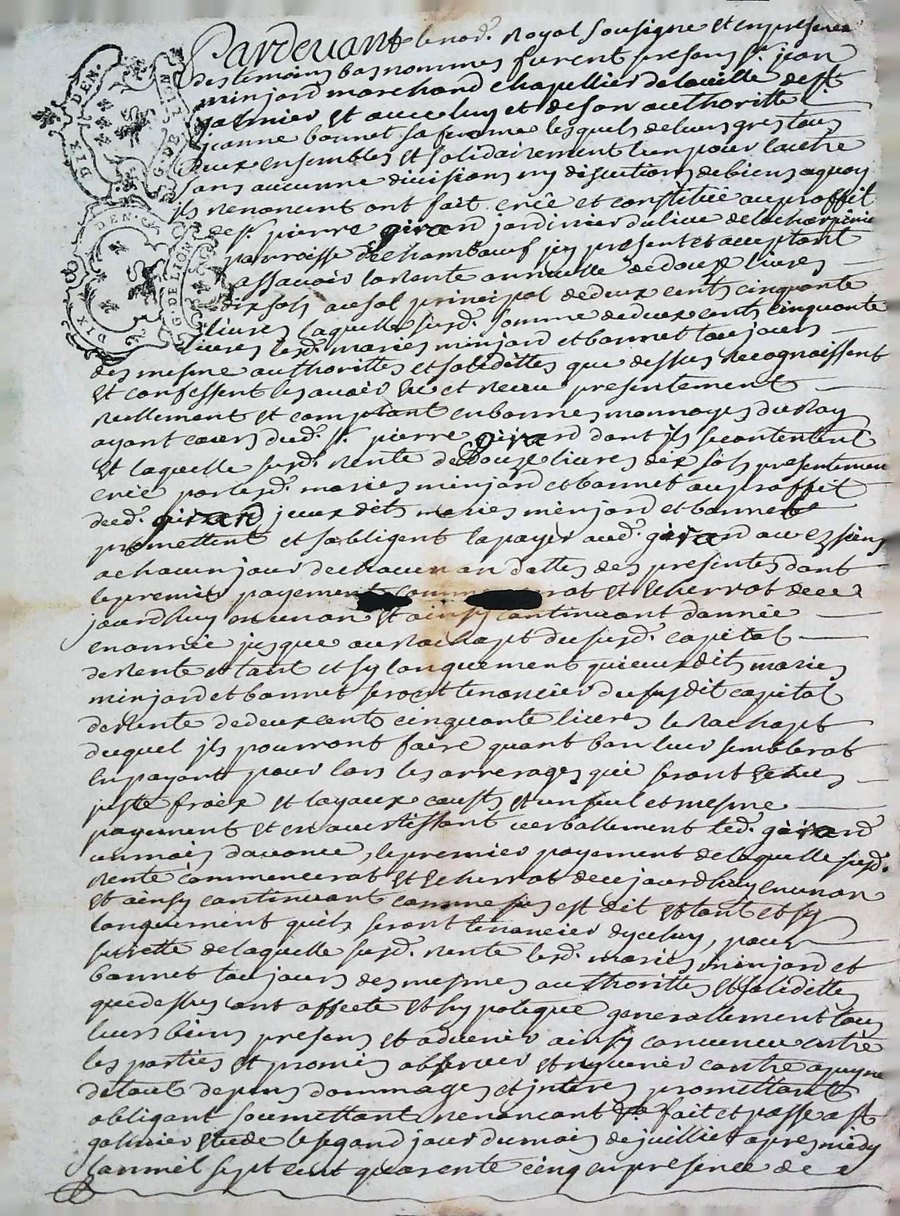 DIX DEN.
G. DE
DIX DEN.
G. DE LION
Pardevant le no.re Royal soussigne et en presence
des temoins bas nommes furent presens s.r jean
minjard marchand chapellier de la ville de s.t
galmier et avec luy et de son authoritte
jeanne bonnet sa femme lesquels de leurs gres tous
deux ensembles et solidairement l'un pour l'autre
sans aucunne divisions ny discutions de biens a quoy
ils renoncent ont fait crée et constitüé au proffit
de s.r pierre girard jardinier du lieu de
parroisse de chambœuf icy present et acceptant
assavoir la rente annuelle de douze livres
dix sols au sol principal de deux cents cinquante
livres laquelle susd. somme de deux cents cinquante
livres lesd. maries minjard et bonnet toujours
des mesme authoritte et solidittes que dessus recognoissent
et confessent les avoir eu et receu presentement
reellement et comptant en bonnes monnoyes du Roy
ayant cours dud. s.r pierre girard dont ils se contentent
et laquelle susd. rente de douze livres dix sols presentement
créé par lesd. maries minjard et bonnet au proffit
dud. girard jceux dits maries minjard et bonnet
promettent et sobligent la payer aud. girard ou ez siens
a chacun jour de chacun an dattes des presentes dont
le premier payement rat et echerrat de ce
jourdhuy en un an et ainsy continuant d'année
en année jusque au rachapt du susd. capital
de rente et tant et sy longuement que ceux dits maries
minjard et bonnet seront tenancier du susdit capital
de rente de deux cents cinquante livres le rachapt
duquel jls pourront faire quant bon leur semblerat
en payant pour lors les arrerages qui seront echeus
juste fraix et loyaux couts et un seul et mesme
payement et en avertissant verballement led. girard
un mois d'avance, le premier payement de laquelle susd.
rente commencerat et echerrat de ce jourdhuy en un an
et ainsy continuant comme sus est dit et tant et sy
longuement quils seront tenancier dyceluy, pour
surette de laquelle susd. rente lesd. maries minjard et
bonnet toujours des mesmes authorittes et solidittes
que dessus ont affecte et hypoteque generallement tous
leurs biens presens et advenir ainsy convenu entre
les parties et promis observer et ny venir contre a peyne
de touts depens dommages et interes promettant
obligant soumettant renoncant &c fait et passe a s.t
galmier etude le segond jour du mois de juillet apres midy
lan mil sept cent quarente cinq en presence de